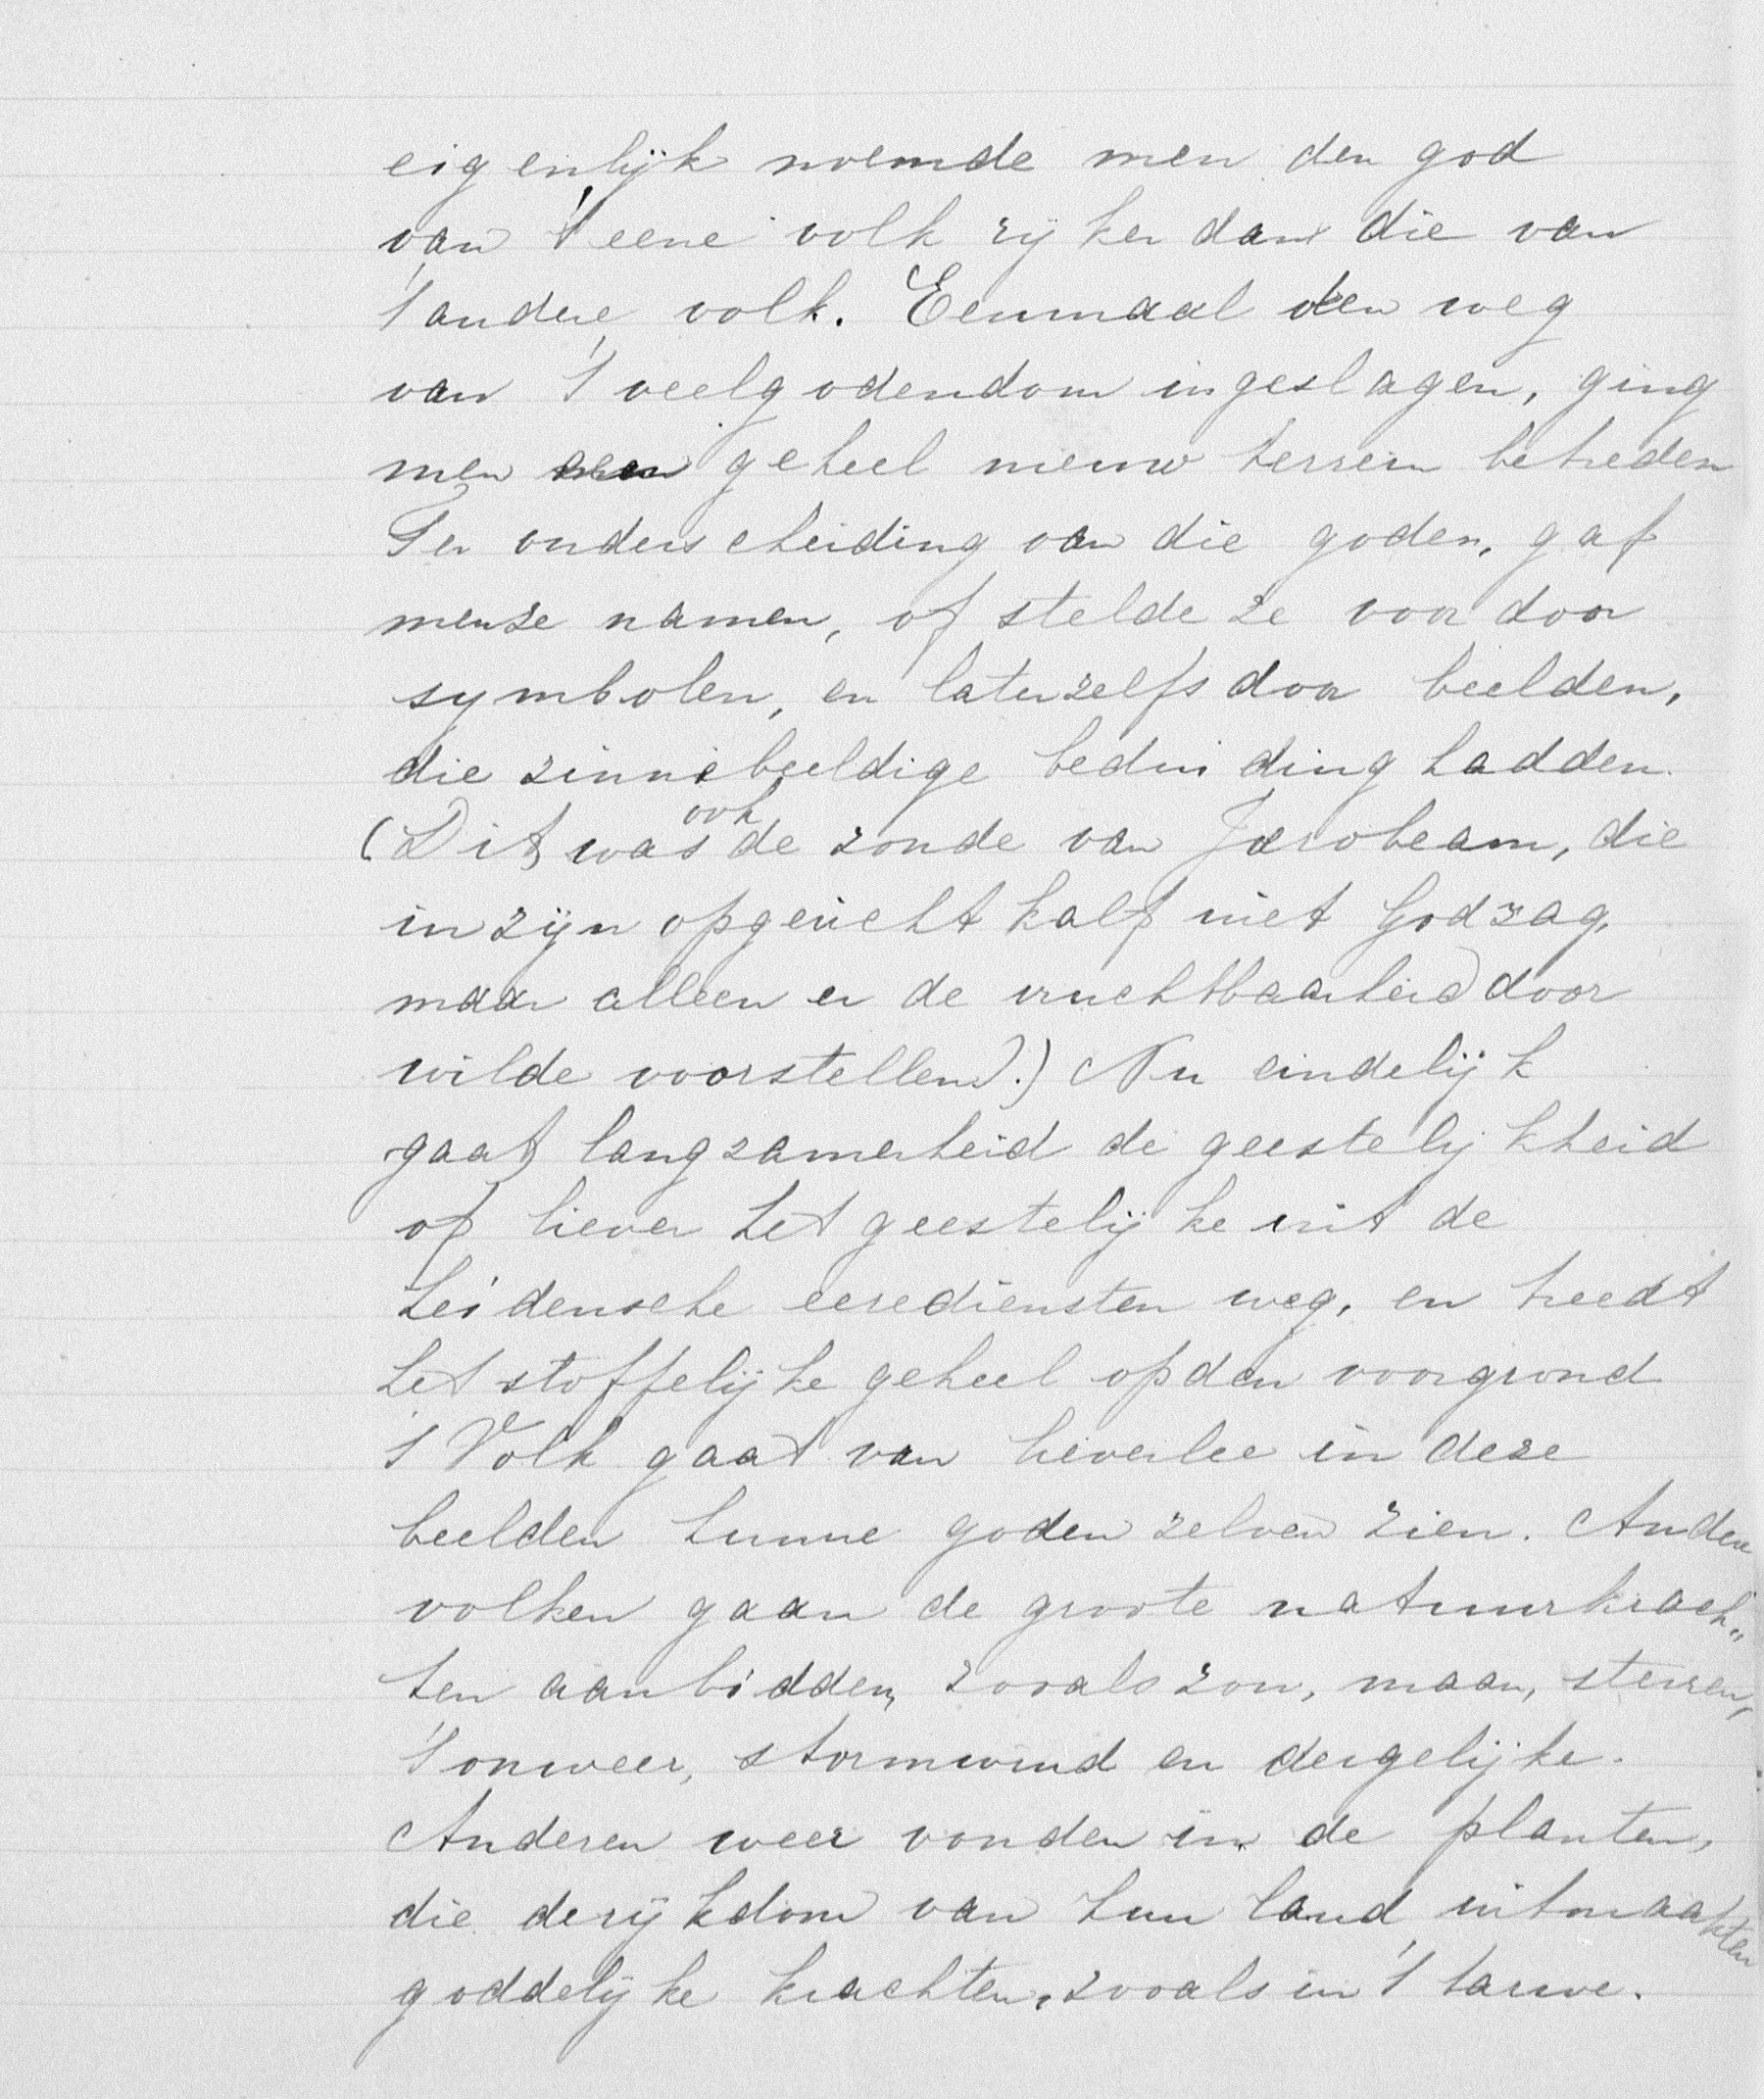 eigenlijk noemde men den god
van 't eene volk rijker dan die van
't andere volk. Eenmaal den weg
van 't veelgodendom ingeslagen, ging
men een geheel nieuw terrein betreden
Ter onderscheiding van die goden, gaf
men ze namen, of stelde ze voor door
symbolen, en later zelfs door beelden,
die zinnebeeldige beduiding hadden.
(Dit was ook de zonde van Jerobeam, die
in zijn opgericht kalf niet God zag,
maar alleen er de vruchtbaarheid door
wilde voorstellen.) Nu eindelijk
gaat langzamerheid de geestelijkheid
of liever het geestelijke uit de
heidensche eerediensten weg, en treedt
het stoffelijke geheel op den voorgrond
't Volk gaat van lieverlee in deze
beelden hunne goden zelven zien. Andere
volken gaan de groote natuurkrach„
ten aanbidden, zooals zon, maan, sterren,
't onweer, stormwind en dergelijke.
Anderen weer vonden in de planten,
die de rijkdom van hun land uitmaakten
goddelijke krachten, zooals in 't tarwe.